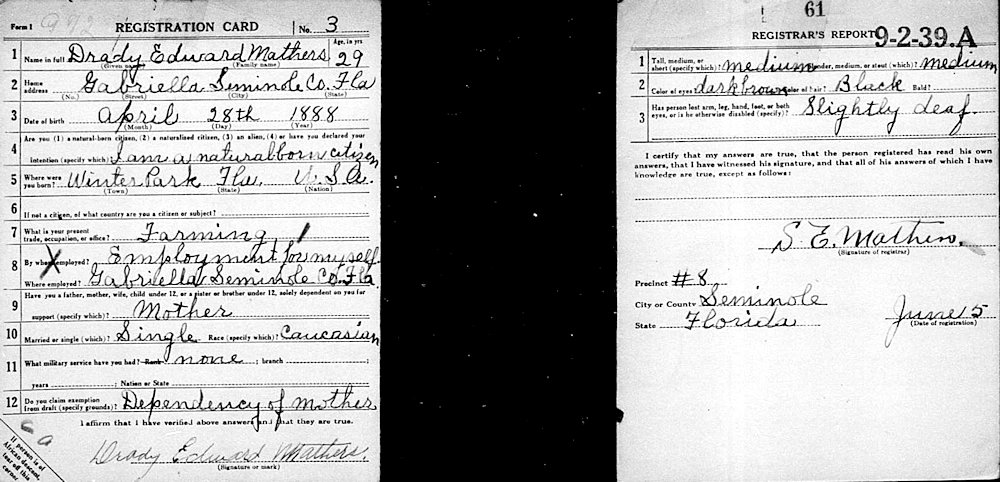 Form 1 REGISTRATION CARD No. 3
1 Name in full Drady Edward Mathers Age, in yrs 29
(Given name) (Family name)
2 Home address Gabriella Seminole Co. Fla
(No.) (Street) (City) (State)
3 Date of birth April 28th 1888
(Month) (Day) (Year)
4 Are you (1) a natural-born citizen, (2) a naturalized citizen, (3) an alien, (4) or have you declared your
intention (specify which)? I am a natural born citizen
5 Where were you born? Winter Park Fla. U.S.A.
(Town) (State) (Nation)
6 If not a citizen, of what country are you a citizen or subject?
7 What is your present trade, occupation, or office? Farming
8 By whom employed? Employment for myself.
Where employed? Gabriella Seminole Co. Fla
9 Have you a father, mother, wife, child under 12, or a sister or brother under 12, solely dependent on you for
support (specify which)? Mother
10 Married or single (which)? Single Race (specify which)? Caucasian
11 What military service have you had? Rank none ; branch ;
years ; Nation or State
12 Do you claim exemption from draft (specify grounds)? Dependency of mother
I affirm that I have verified above answers and that they are true.
Drady Edward Mathers.
(Signature or mark)
If person is of
African descent,
tear off this
corner
61
REGISTRAR'S REPORT 9-2-39.A
1 Tall, medium, or short (specify which)? medium Slender, medium, or stout (which)? medium
2 Color of eyes? dark brown Color of hair? Black Bald?
3 Has person lost arm, leg, hand, foot, or both
eyes, or is he otherwise disabled (specify)? Slightly deaf.
I certify that my answers are true, that the person registered has read his own
answers, that I have witnessed his signature, and that all of his answers of which I have
knowledge are true, except as follows:
(Signature of registrar)
Precinct #8
City or County Seminole
State Florida June 5
(Date of registration)